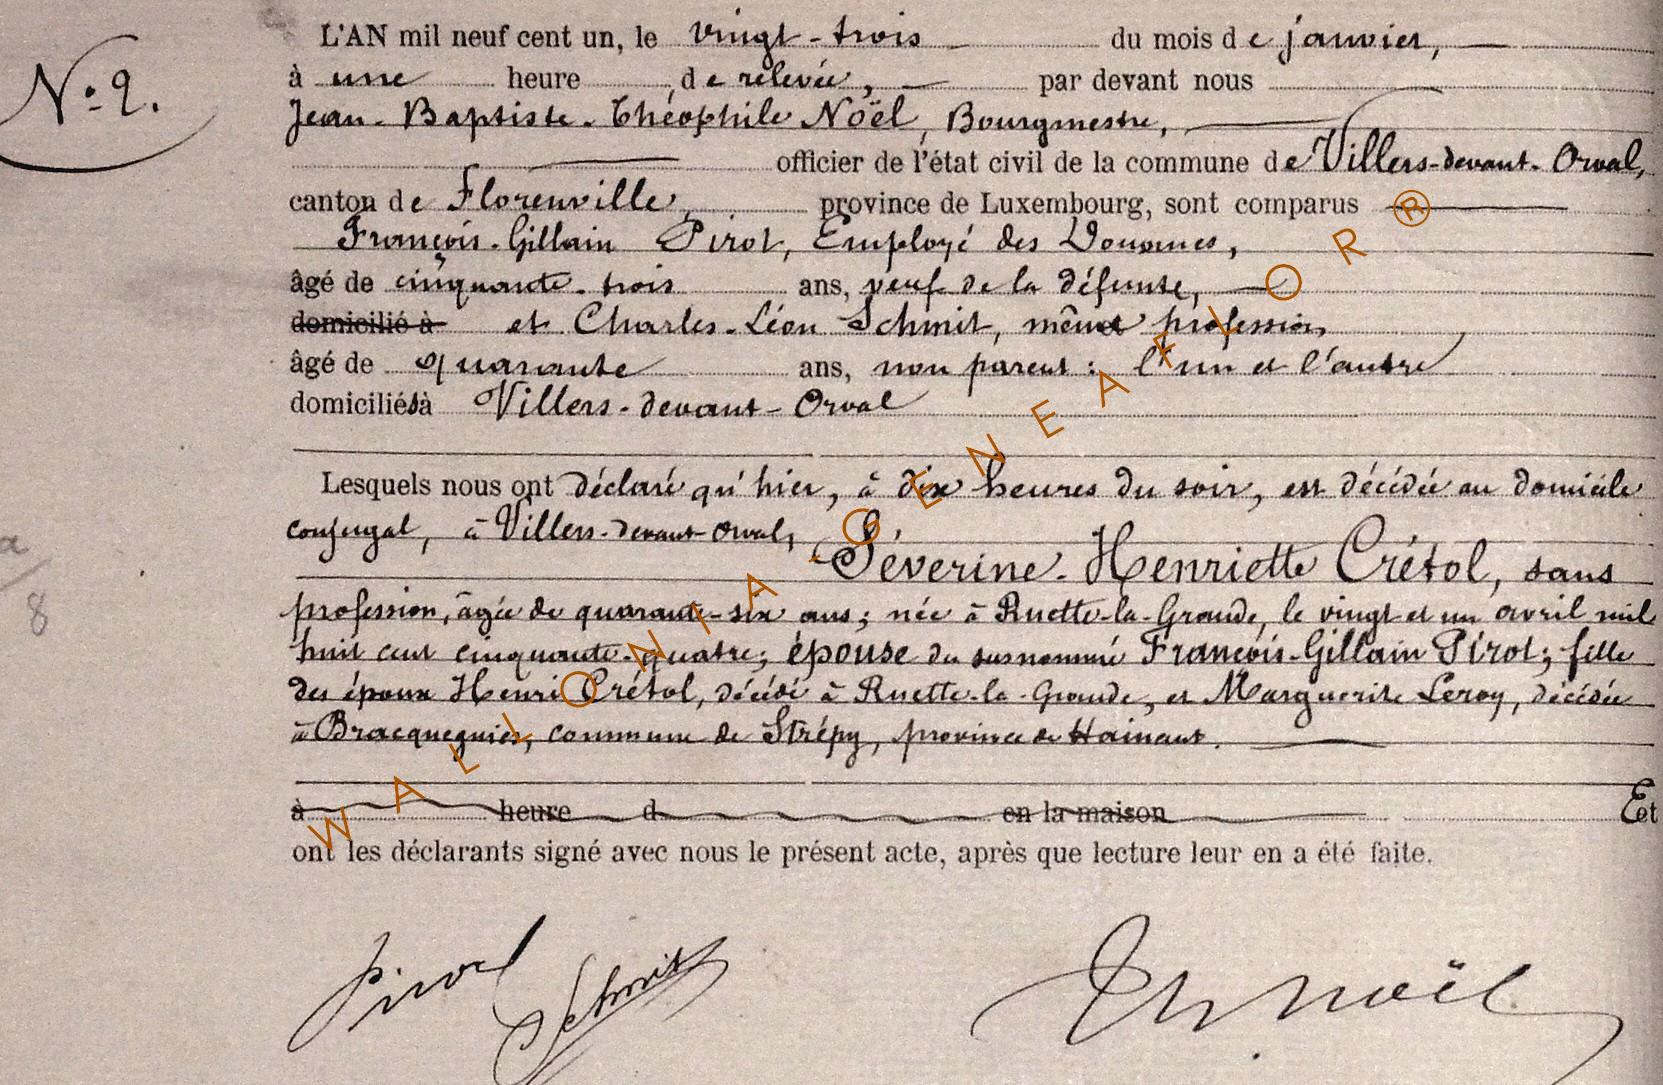 N° 2.
L'AN mil neuf cent un, le vingt-trois du mois de janvier,
à une heure de relevée, par devant nous
Jean-Baptiste-Théophile Noël, Bourgmestre,
officier de l'état civil de la commune de Villers-devant-Orval,
canton de Florenville, province de Luxembourg, sont comparus
François-Gillain Pirot, Employé des Douanes,
âgé de cinquante-trois ans, veuf de la défunte,
domicilié à et Charles-Léon Schmit, même profession,
âgé de quarante ans, non parent : l'un et l'autre
domiciliés à Villers-devant-Orval
Lesquels nous ont déclaré qu'hier, à dix heures du soir, est décédée au domicile
conjugal, à Villers-devant-Orval,
Séverine-Henriette Crétol, sans
profession, âgée de quarante-six ans; née à Ruette-la-Grande, le vingt et un avril mil
huit cent cinquante-quatre; épouse du susnommé François-Gillain Pirot; fille
des époux Henri Crétol, décédé à Ruette-la-Grande, et Marguerite Leroy, décédée
à Bracquegnies, commune de Strépy, province de Hainaut.
à heure d en la maison Et
ont les déclarants signé avec nous le présent acte, après que lecture leur en a été faite.
Pirot Schmit Th Noël
a
8
WALLONIA-GENEAFLOR®